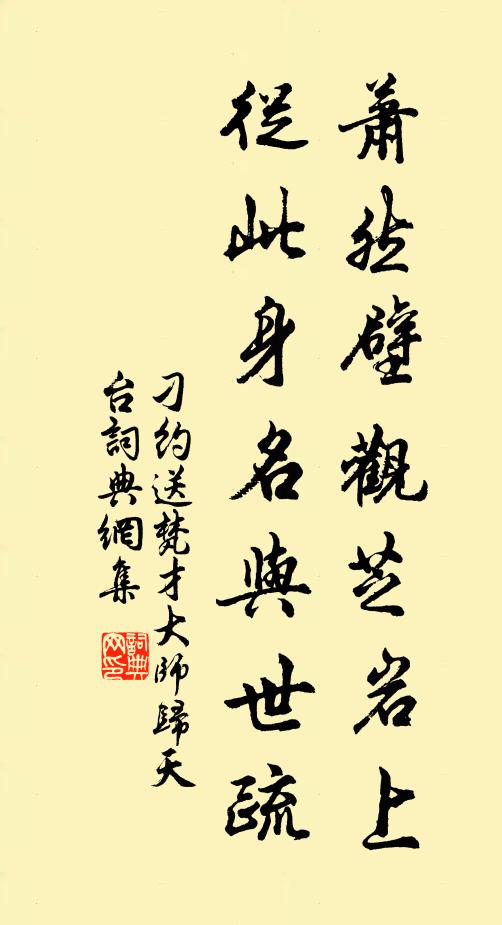 蕭然壁觀芝岩上
從此身名與世疏
刁約送梵才大師歸天
台詞典網集
詞典
网印